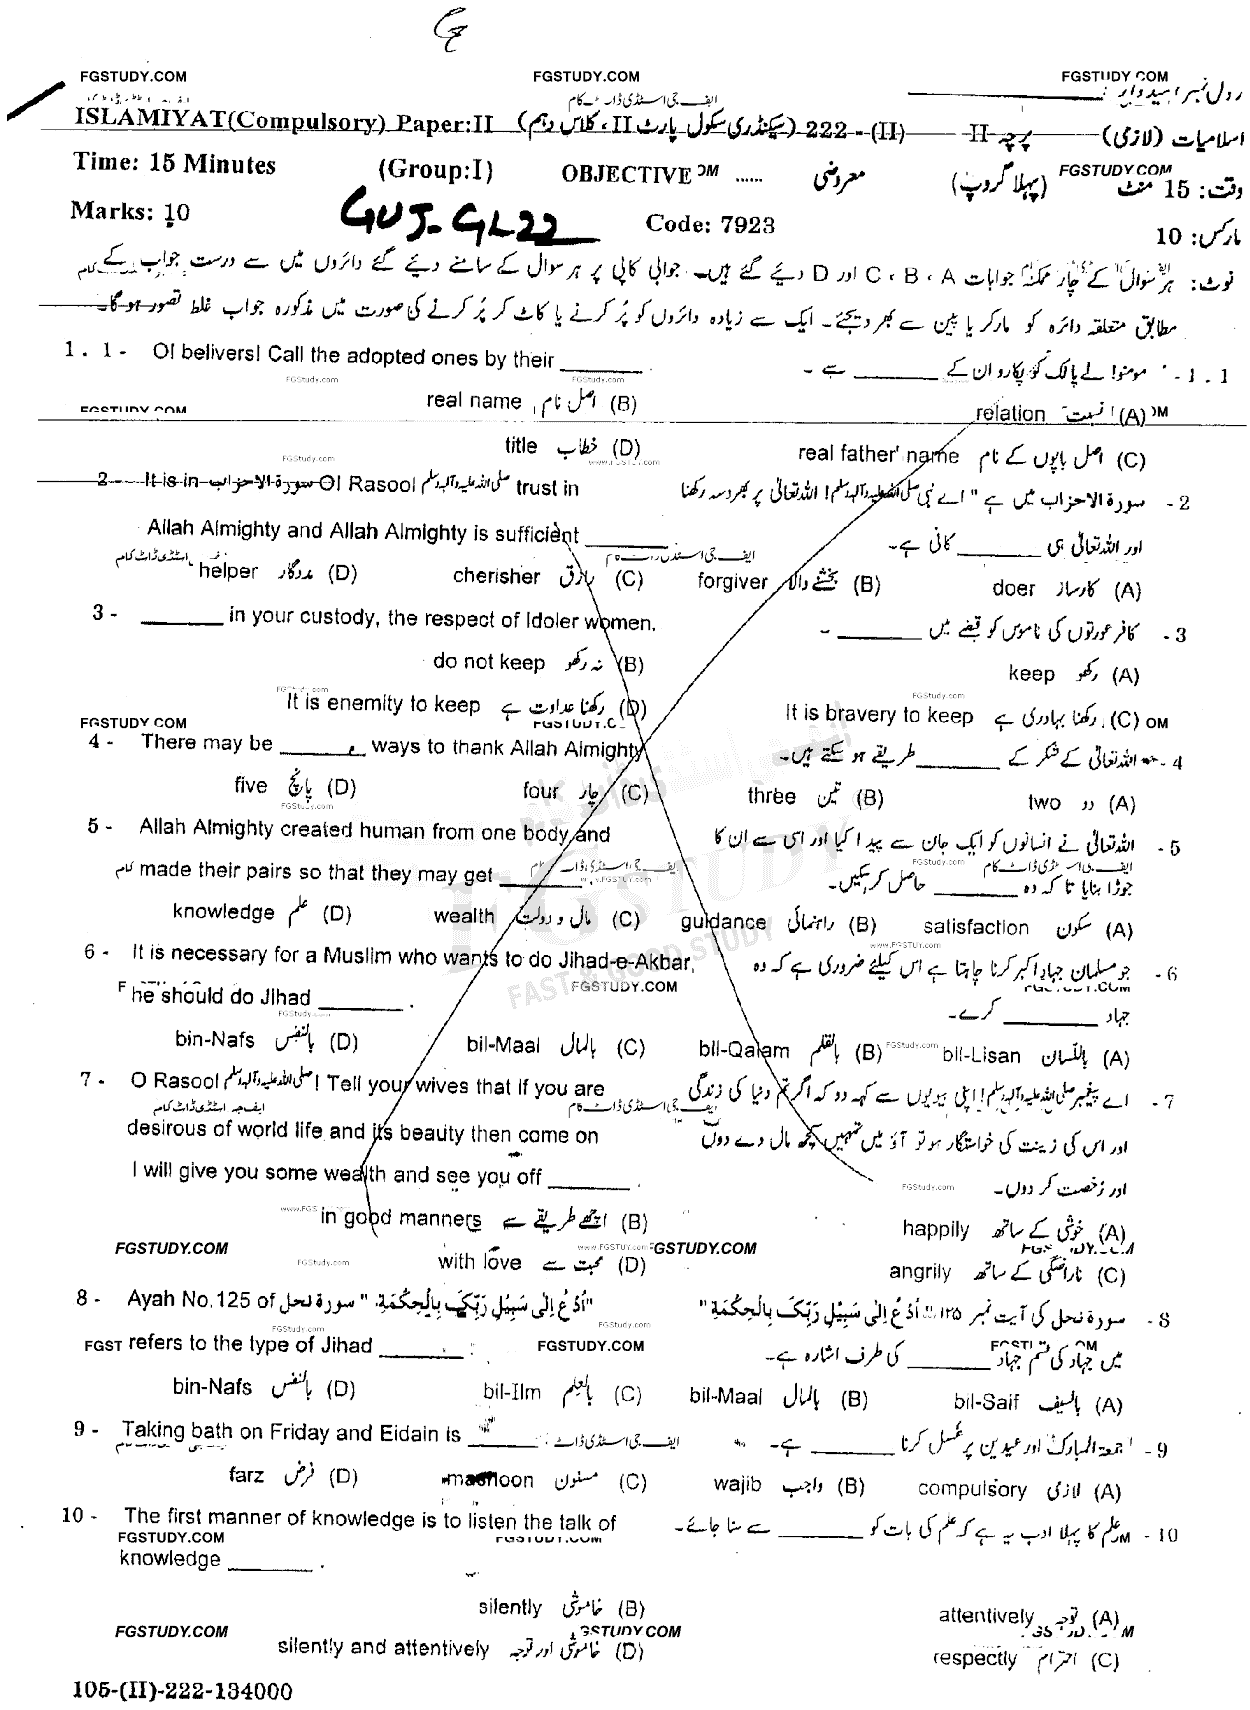 FGSTUDY.COM FGSTUDY.COM FGSTUDY.COM
ایف جی اسٹڈی ڈاٹ کام
ISLAMIYAT(Compulsory) Paper:II (سیکنڈری سکول پارٹ II، کلاس دہم) 222 -(II) پرچہ - II اسلامیات (لازمی)
Time: 15 Minutes (Group:I) OBJECTIVE معروضی (پہلا گروپ) FGSTUDY.COM وقت: 15 منٹ
Marks: 10 GUJ-G1-22 Code: 7923 مارکس: 10
نوٹ: ہر سوال کے چار ممکنہ جوابات A ، B ، C اور D دیئے گئے ہیں۔ جوابی کاپی پر ہر سوال کے سامنے دیئے گئے دائروں میں سے درست جواب کے
مطابق متعلقہ دائرہ کو مارکر یا پین سے بھر دیجئے۔ ایک سے زیادہ دائروں کو پُر کرنے یا کاٹ کر پُر کرنے کی صورت میں مذکورہ جواب غلط تصور ہو گا۔
1 . 1 - O! belivers! Call the adopted ones by their ______ مومنو! لے پالک کو پکارو ان کے ______ سے ۔ - 1 . 1
real name اصل نام (B) relation نسبت (A)
title خطاب (D) real father' name اصل باپوں کے نام (C)
2 - It is in سورۃ الاحزاب O! Rasool صلی اللہ علیہ وآلہ وسلم trust in سورۃ الاحزاب میں ہے " اے نبی صلی اللہ علیہ وآلہ وسلم! اللہ تعالٰی پر بھروسہ رکھنا - 2
Allah Almighty and Allah Almighty is sufficient ______ اور اللہ تعالٰی ہی ______ کافی ہے۔
helper مددگار (D) cherisher رازق (C) forgiver بخشنے والا (B) doer کارساز (A)
3 - ______ in your custody, the respect of Idoler women. کافر عورتوں کی ناموس کو قبضے میں ______ ۔ - 3
do not keep نہ رکھو (B) keep رکھو (A)
It is enemity to keep رکھنا عداوت ہے (D) It is bravery to keep رکھنا بہادری ہے (C)
4 - There may be ______ ways to thank Allah Almighty اللہ تعالٰی کے شکر کے ______ طریقے ہو سکتے ہیں۔ - 4
five پانچ (D) four چار (C) three تین (B) two دو (A)
5 - Allah Almighty created human from one body and اللہ تعالٰی نے انسانوں کو ایک جان سے پیدا کیا اور اسی سے ان کا - 5
made their pairs so that they may get ______ جوڑا بنایا تا کہ وہ ______ حاصل کر سکیں۔
knowledge علم (D) wealth مال و دولت (C) guidance راہنمائی (B) satisfaction سکون (A)
6 - It is necessary for a Muslim who wants to do Jihad-e-Akbar, جو مسلمان جہادِ اکبر کرنا چاہتا ہے اس کیلئے ضروری ہے کہ وہ - 6
he should do Jihad ______ . FGSTUDY.COM جہاد ______ کرے۔
bin-Nafs بالنفس (D) bil-Maal بالمال (C) bil-Qalam بالقلم (B) bil-Lisan باللسان (A)
7 - O Rasool صلی اللہ علیہ وآلہ وسلم! Tell your wives that if you are اے پیغمبر صلی اللہ علیہ وآلہ وسلم! اپنی بیویوں سے کہہ دو کہ اگر تم دنیا کی زندگی - 7
desirous of world life and its beauty then come on اور اس کی زینت کی خواستگار ہو تو آؤ میں تمہیں کچھ مال دے دوں
I will give you some wealth and see you off ______ . اور رخصت کر دوں۔
in good manners اچھے طریقے سے (B) happily خوشی کے ساتھ (A)
FGSTUDY.COM with love محبت سے (D) angrily ناراضگی کے ساتھ (C)
8 - Ayah No.125 of سورۃ نحل "اُدْعُ اِلٰی سَبِیْلِ رَبِّکَ بِالْحِکْمَۃِ" سورۃ نحل کی آیت نمبر ۱۲۵ "اُدْعُ اِلٰی سَبِیْلِ رَبِّکَ بِالْحِکْمَۃِ" - 8
refers to the type of Jihad ______ . FGSTUDY.COM میں جہاد کی قسم جہاد ______ کی طرف اشارہ ہے۔
bin-Nafs بالنفس (D) bil-Ilm بالعلم (C) bil-Maal بالمال (B) bil-Saif بالسیف (A)
9 - Taking bath on Friday and Eidain is ______ . جمعۃ المبارک اور عیدین پر غسل کرنا ______ ہے۔ - 9
farz فرض (D) masnoon مسنون (C) wajib واجب (B) compulsory لازمی (A)
10 - The first manner of knowledge is to listen the talk of علم کا پہلا ادب یہ ہے کہ علم کی بات کو ______ سے سنا جائے۔ - 10
FGSTUDY.COM
knowledge ______ .
silently خاموشی (B) attentively توجہ (A)
FGSTUDY.COM
silently and attentively خاموشی اور توجہ (D) respectly احترام (C)
105-(II)-222-134000